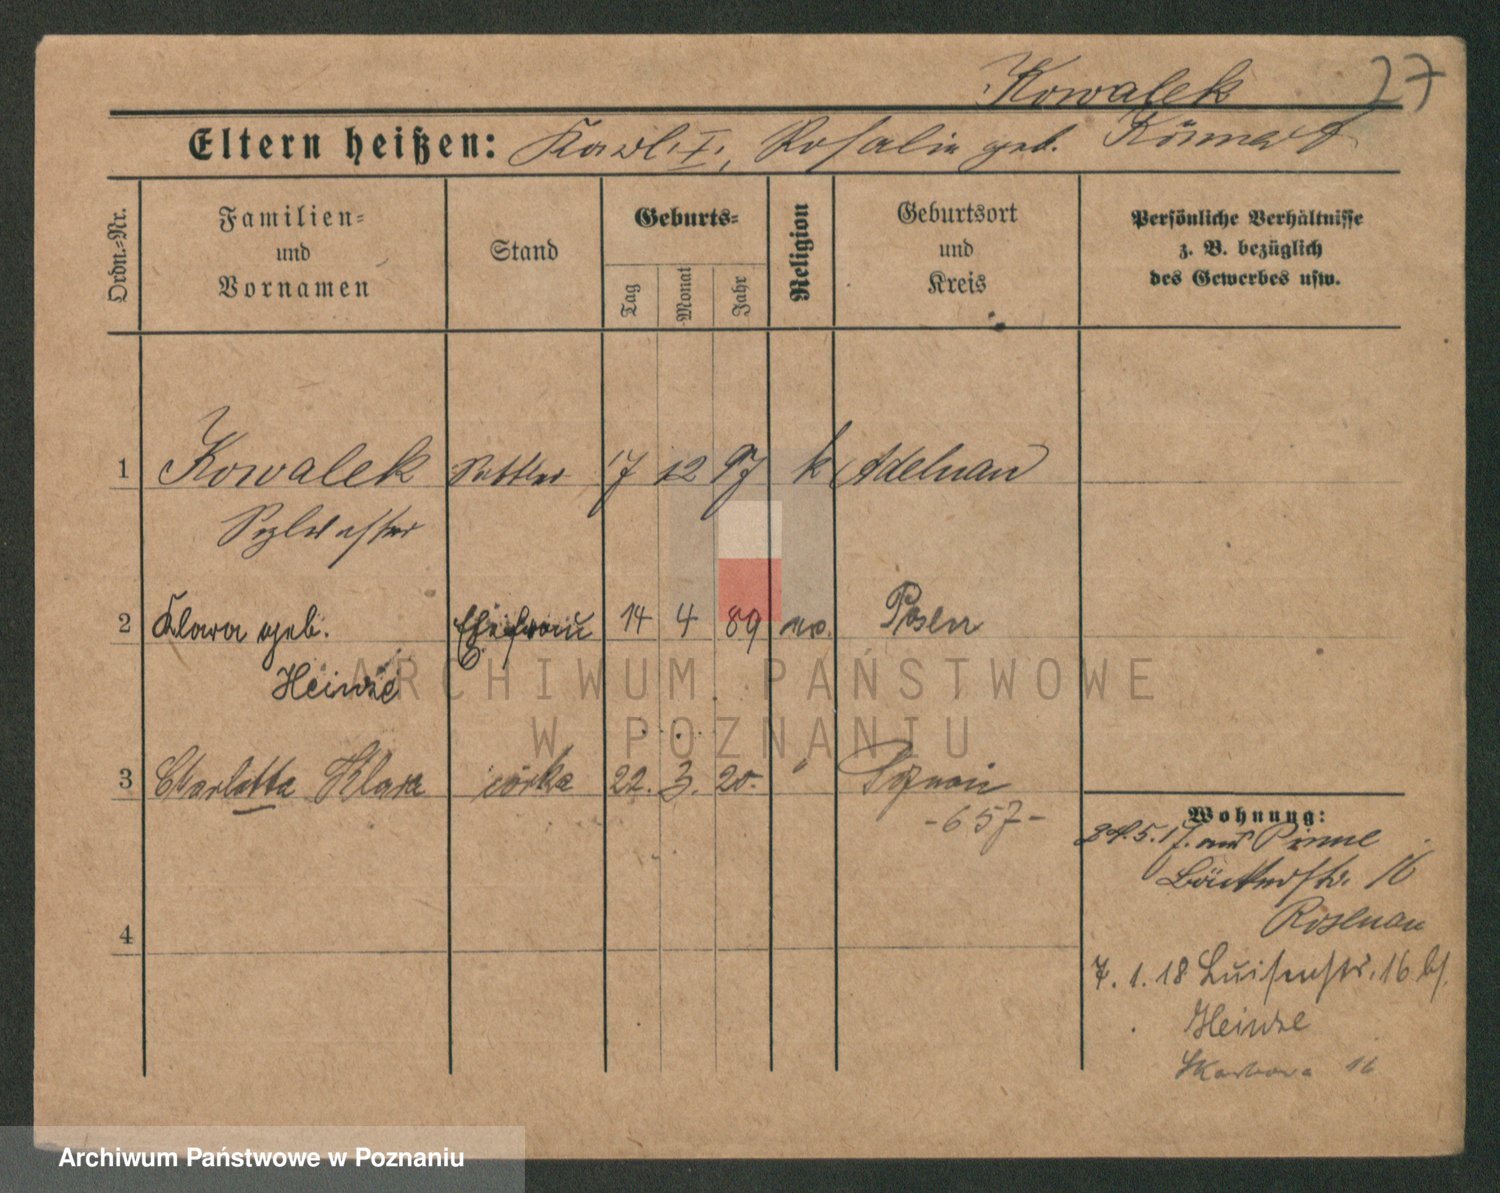 Kowalek 27
Eltern heißen: Karl I, Rosalie geb.
Ordn.-Nr.
Familien-
und
Vornamen
Stand
Geburts-
Tag
Monat
Jahr
Religion
Geburtsort
und
Kreis
Persönliche Verhältnisse
z. B. bezüglich
des Gewerbes usw.
1 Kowalek Sattler 17 12 97 k Adelnau
Sylvester
2 Klara geb. Ehefrau 14 4 89 Posen
Heinze
3 Charlotta Klara córka 22. 3. 20. Poznań
-657-
4
Wohnung:
24.5.17. aus Pinne
Bäckerstr. 16
Rosenau
7.1.18 Luisenstr. 16 bf.
Heinze
Skarbowa 16
ARCHIWUM PAŃSTWOWE
W POZNANIU
Archiwum Państwowe w Poznaniu